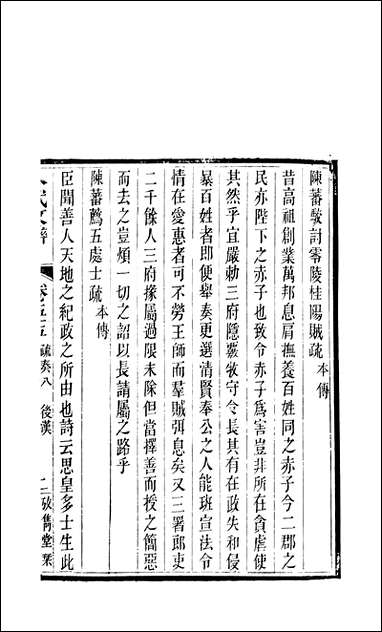 陳蕃駮討零陵桂陽賊疏 本傳
昔高祖創業萬邦息肩撫養百姓同之赤子今二郡之
民亦陛下之赤子也致令赤子爲害豈非所在貪虐使
其然乎宜嚴勅三府隱覈牧守令長其有在政失和侵
暴百姓者卽便舉奏更選清賢奉公之人能班宣法令
情在愛惠者可不勞王師而羣賊弭息矣又三署郎吏
二千餘人三府掾屬過限未除但當擇善而授之簡惡
而去之豈煩一切之詔以長請屬之路乎
陳蕃薦五處士疏 本傳
臣聞善人天地之紀政之所由也詩云思皇多士生此
卷五五 疏奏八 後漢 二 攸雋堂栞